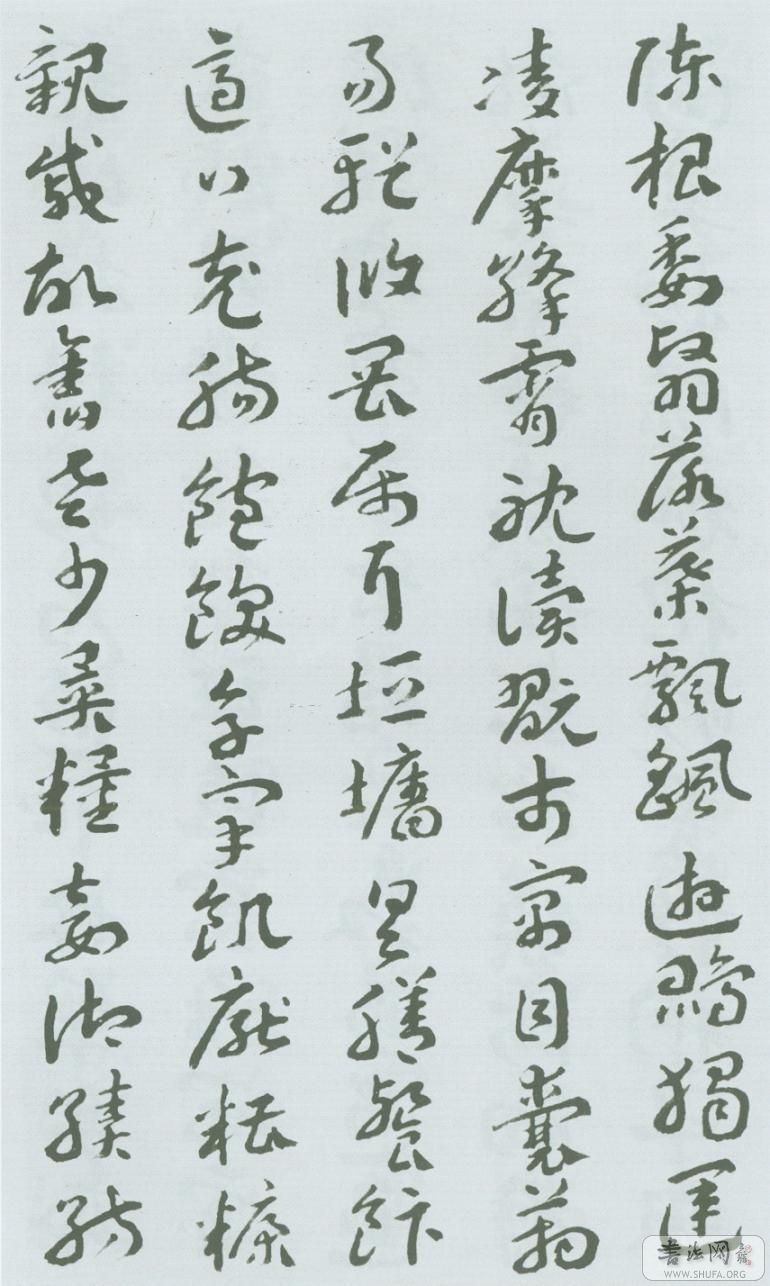 陳根委翳落葉飄飖遊鵾獨運
凌摩絳霄耽讀翫市寓目囊箱
易輶攸畏屬耳垣墻具膳餐飯
適口充腸飽飫烹宰飢厭糟糠
親戚故舊老少異糧妾御績紡
書法网
WWW.SHUFA.ORG